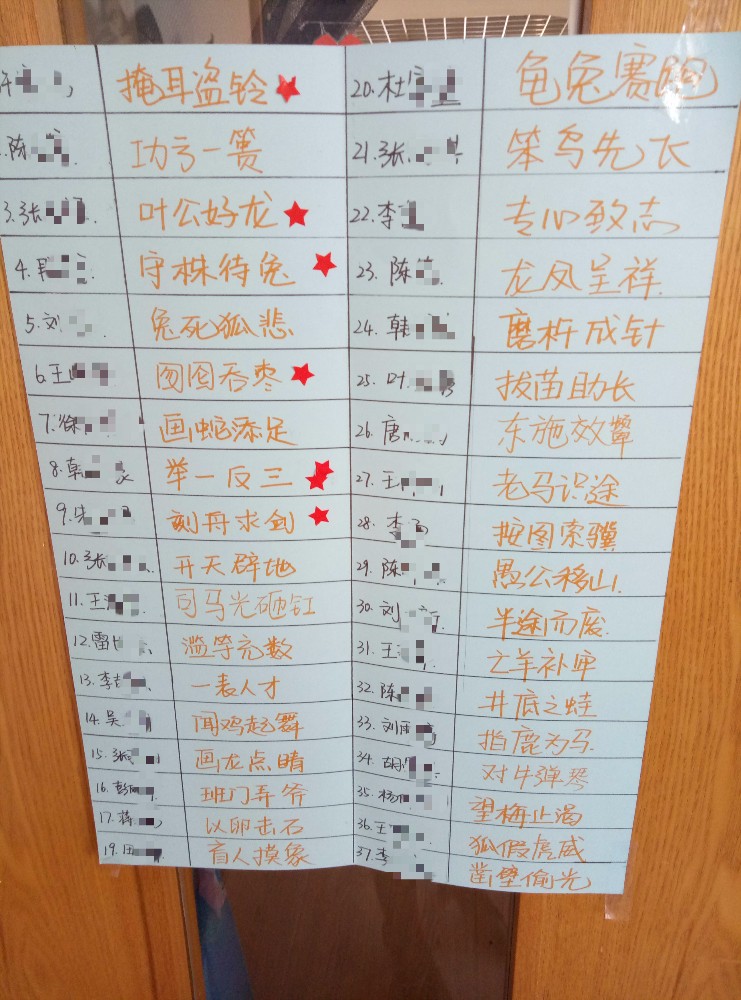 掩耳盗铃
陈 功亏一篑
3.张 叶公好龙
4. 守株待兔
5.刘 兔死狐悲
6.王 囫囵吞枣
7.徐 画蛇添足
8.韩 举一反三
9.朱 刻舟求剑
10.张 开天辟地
11.王 司马光砸缸
12.雷 滥竽充数
13.李 一表人才
14.吴 闻鸡起舞
15.张 画龙点睛
16.彭 班门弄斧
17.蒋 以卵击石
19.田 盲人摸象
20.杜 龟兔赛跑
21.张 笨鸟先飞
22.李 专心致志
23.陈 龙凤呈祥
24.韩 磨杵成针
25.叶 拔苗助长
26.唐 东施效颦
27.王 老马识途
28.李 按图索骥
29.陈 愚公移山
30.刘 半途而废
31.王 亡羊补牢
32.陈 井底之蛙
33.刘 指鹿为马
34.胡 对牛弹琴
35.杨 望梅止渴
36.王 狐假虎威
37.李 凿壁偷光